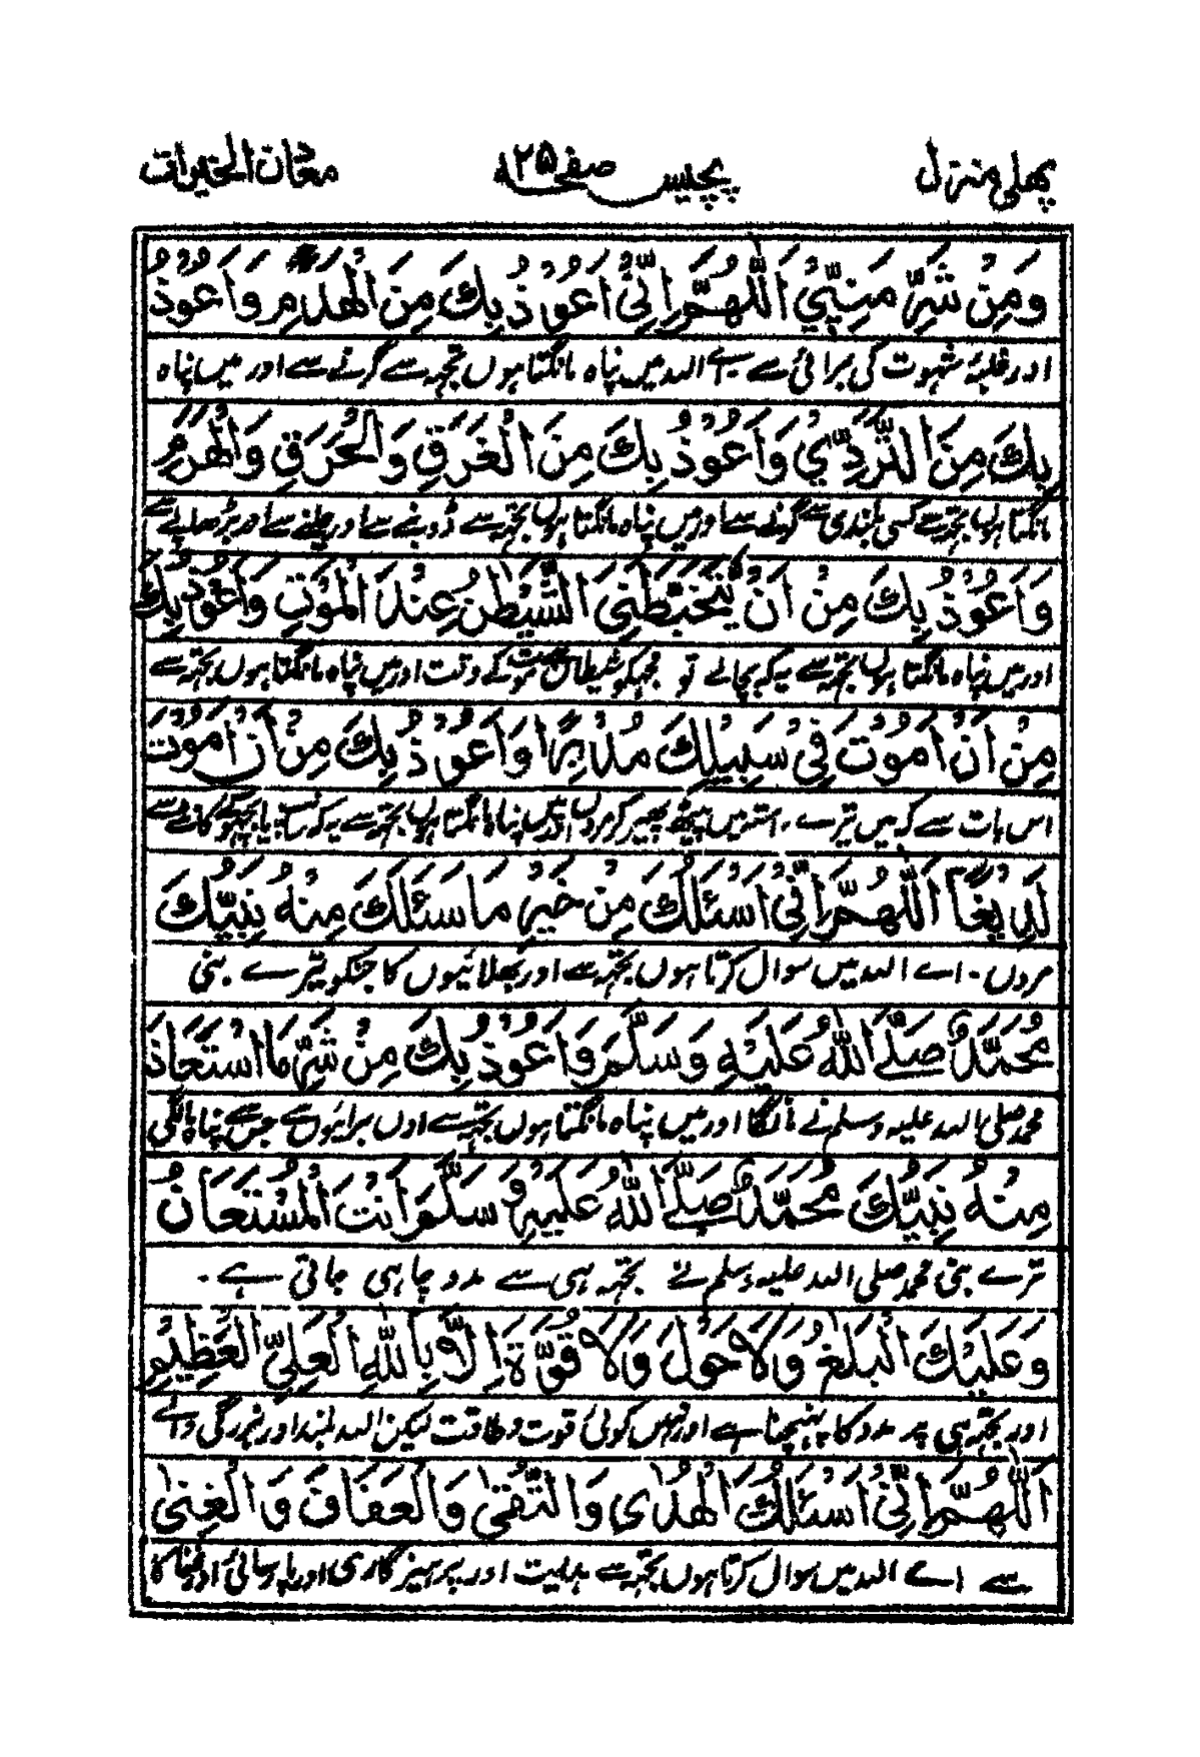 پہلی منزل پچیس صفحہ ۲۵ معدن الخیرات
وَمِنْ شَرِّ مَنِيِّيْ اَللّٰهُمَّ اِنِّيْ اَعُوْذُ بِكَ مِنَ الْهَدْمِ وَاَعُوْذُ
اور غلبۂ شہوت کی برائی سے اے اللہ میں پناہ مانگتا ہوں تجھ سے گرنے سے اور میں پناہ
بِكَ مِنَ التَّرَدِّيْ وَاَعُوْذُ بِكَ مِنَ الْغَرَقِ وَالْحَرَقِ وَالْهَرَمِ
مانگتا ہوں تجھ سے کسی بلندی سے گرنے سے اور میں پناہ مانگتا ہوں تجھ سے ڈوبنے سے اور جلنے سے اور بڑھاپے سے
وَاَعُوْذُ بِكَ مِنْ اَنْ يَّتَخَبَّطَنِيَ الشَّيْطٰنُ عِنْدَ الْمَوْتِ وَاَعُوْذُ بِكَ
اور میں پناہ مانگتا ہوں تجھ سے یہ کہ بچالے تو مجھکو شیطان سے موت کے وقت اور میں پناہ مانگتا ہوں تجھ سے
مِنْ اَنْ اَمُوْتَ فِيْ سَبِيْلِكَ مُدْبِرًا وَاَعُوْذُ بِكَ مِنْ اَنْ اَمُوْتَ
اس بات سے کہ میں تیرے راستہ میں پیٹھ پھیر کر مروں اور میں پناہ مانگتا ہوں تجھ سے یہ کہ سانپ یا بچھو کے کاٹے سے
لَدِيْغًا اَللّٰهُمَّ اِنِّيْ اَسْئَلُكَ مِنْ خَيْرِ مَا سَئَلَكَ مِنْهُ نَبِيُّكَ
مروں ۔ اے اللہ میں سوال کرتا ہوں تجھ سے اور بھلائیوں کا جنکو تیرے نبی
مُحَمَّدٌ صَلَّى اللّٰهُ عَلَيْهِ وَسَلَّمَ وَاَعُوْذُ بِكَ مِنْ شَرِّ مَا اسْتَعَاذَ
محمد صلی اللہ علیہ وسلم نے مانگا اور میں پناہ مانگتا ہوں تجھ سے اون برائیوں سے جس سے پناہ مانگی
مِنْهُ نَبِيُّكَ مُحَمَّدٌ صَلَّى اللّٰهُ عَلَيْهِ وَسَلَّمَ اَنْتَ الْمُسْتَعَانُ
ترے نبی محمد صلی اللہ علیہ وسلم نے تجھ ہی سے مدد چاہی جاتی ہے ۔
وَعَلَيْكَ الْبَلٰغُ وَلَا حَوْلَ وَلَا قُوَّةَ اِلَّا بِاللّٰهِ الْعَلِيِّ الْعَظِيْمِ
اور تجھ ہی پر مدد کا پہنچنا ہے اور نہیں کوئی قوت و طاقت لیکن اللہ بلند اور بزرگی والے
اَللّٰهُمَّ اِنِّيْ اَسْئَلُكَ الْهُدٰى وَالتُّقٰى وَالْعَفَافَ وَالْغِنٰى
سے اے اللہ میں سوال کرتا ہوں تجھ سے ہدایت اور پرہیزگاری اور پارسائی اور غنا کا